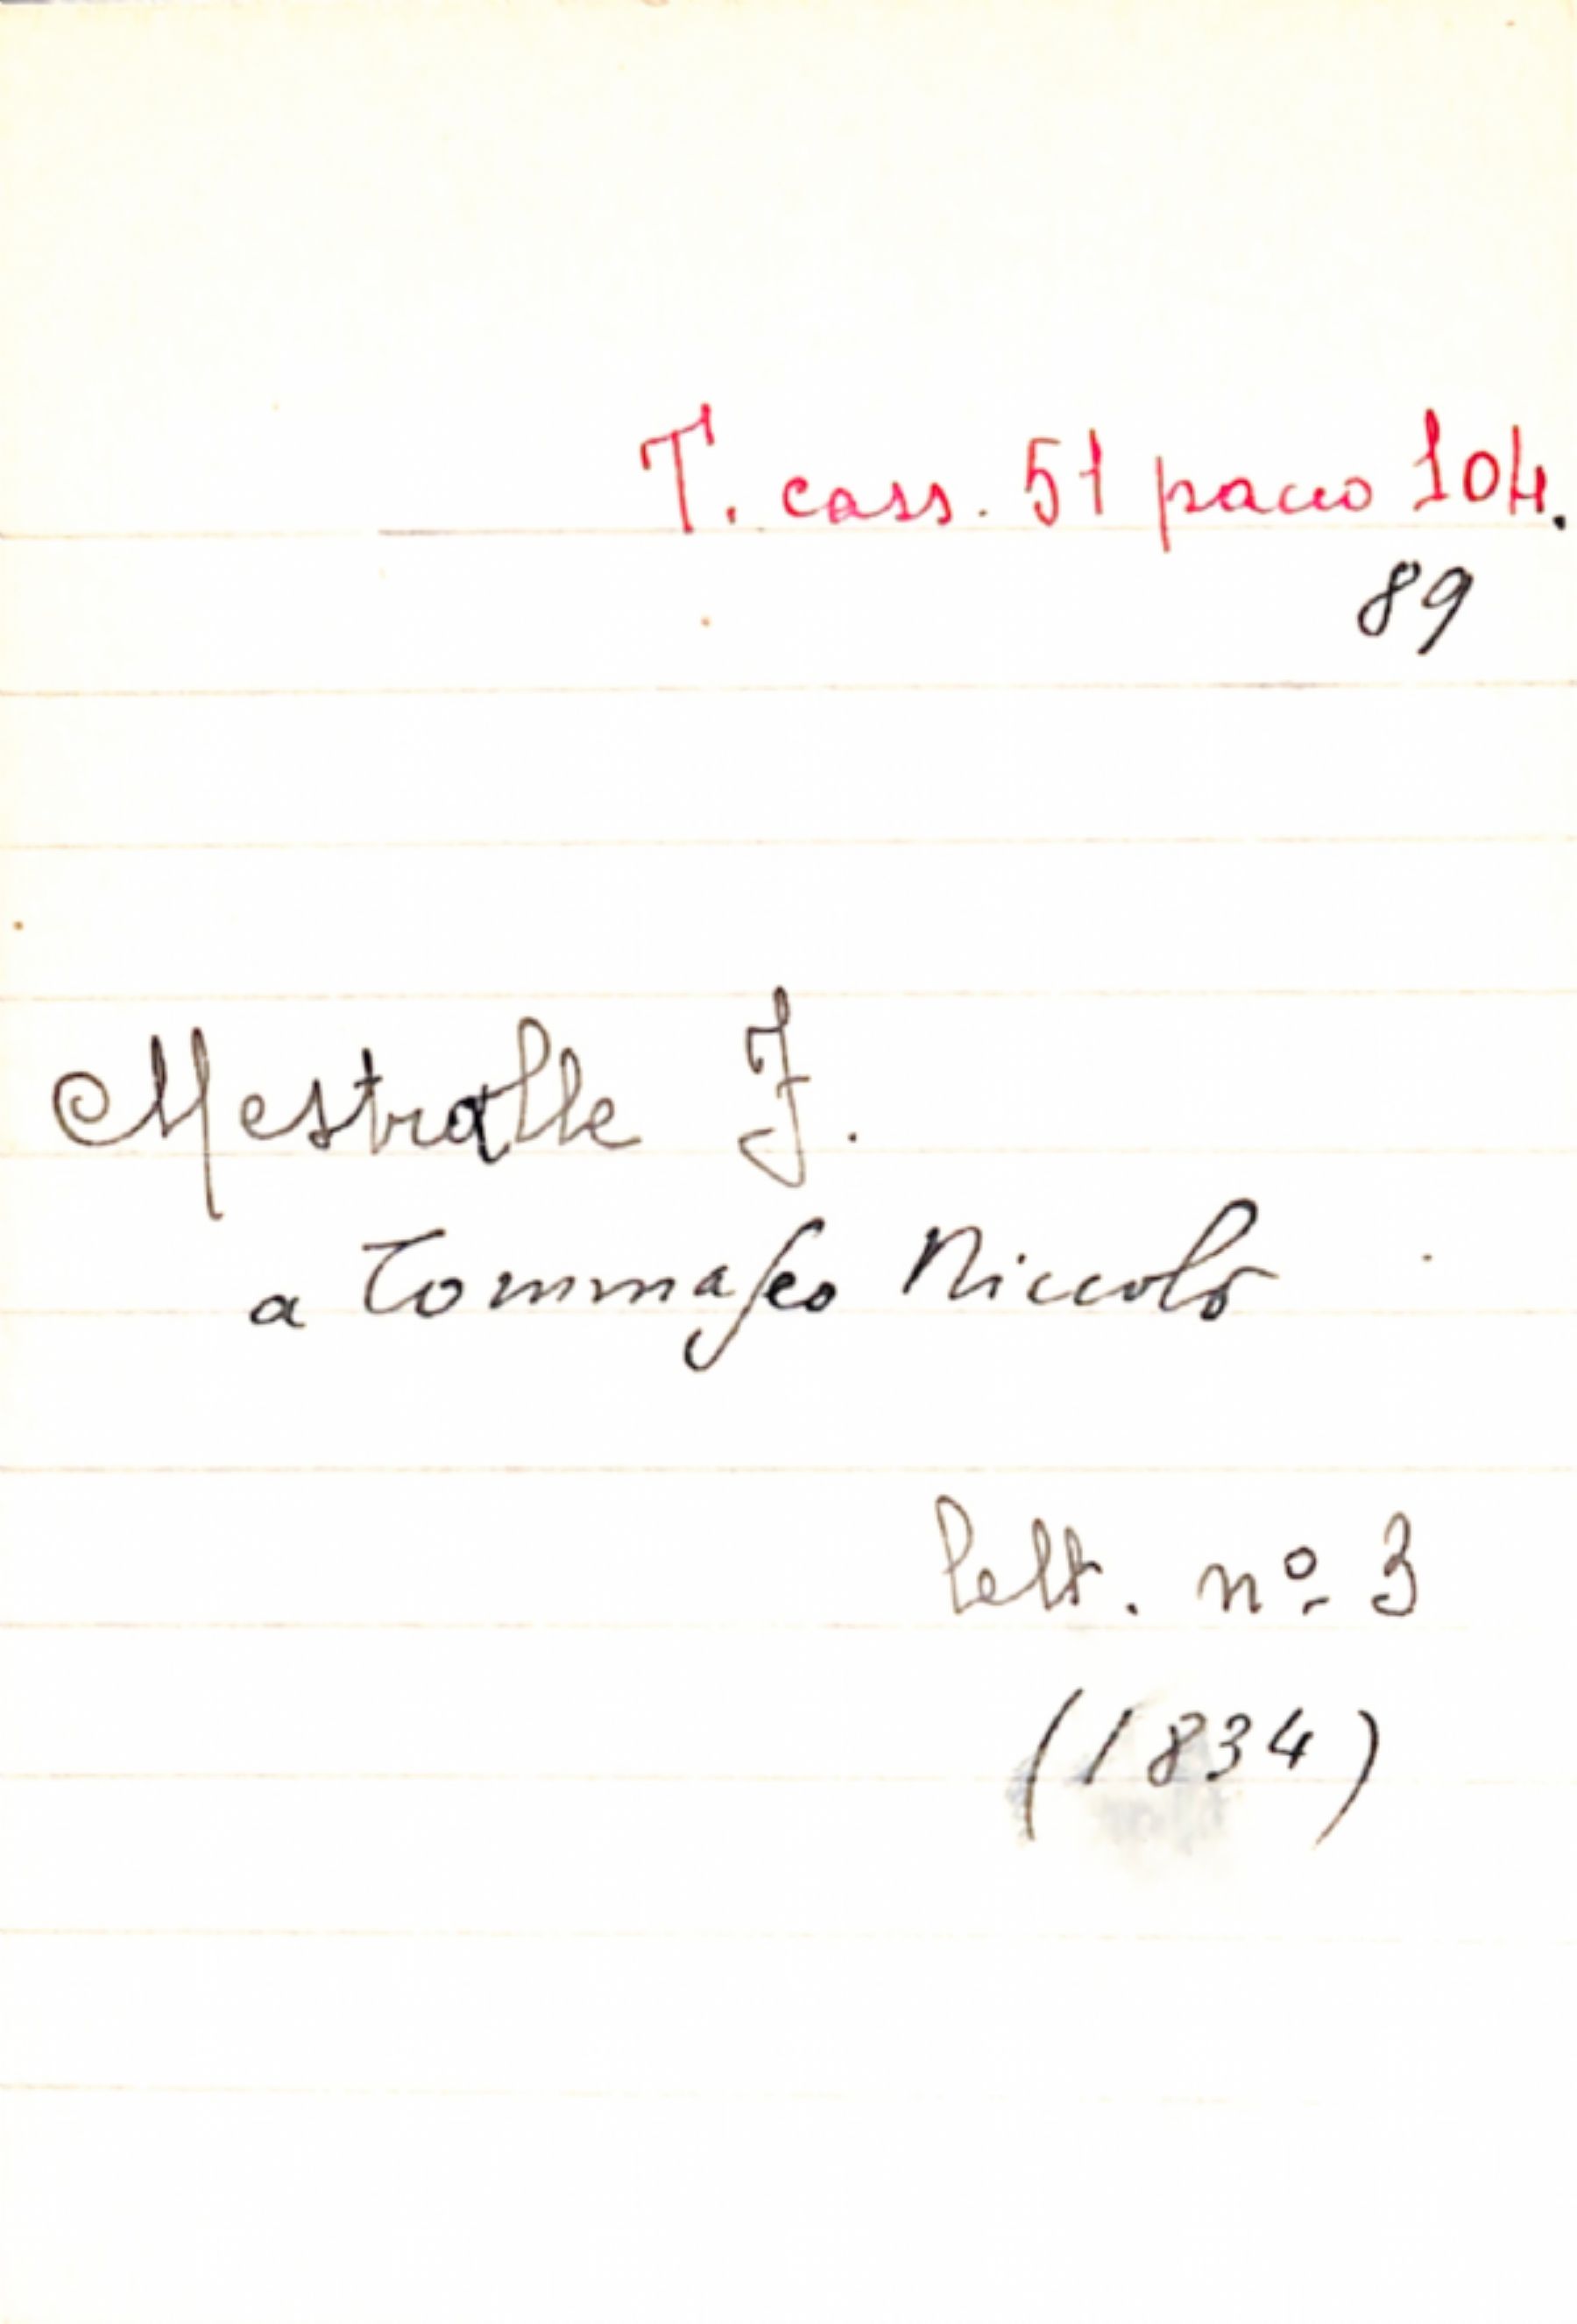 T. cass. 51 pacco 104.
89
Mestralle J.
a Tommaseo Niccolò
lett. nº 3
(1834)